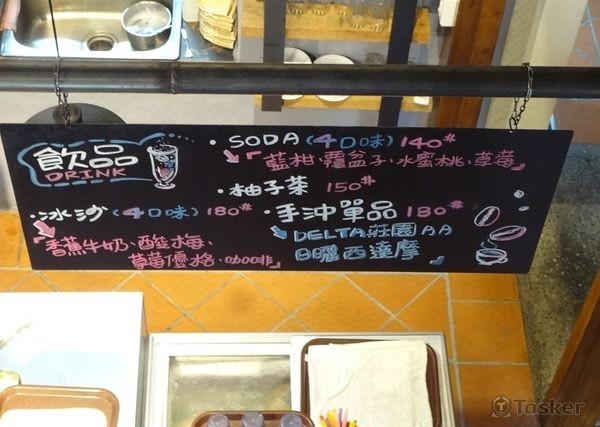 飲品
DRINK
・SODA (4口味) 140
「藍柑、覆盆子、水蜜桃、草莓」
・柚子茶 150
・冰沙 (4口味) 180
「香蕉牛奶、酸梅、
草莓優格、咖啡」
・手沖單品 180
DELTA莊園AA
日曬西達摩
Tasker